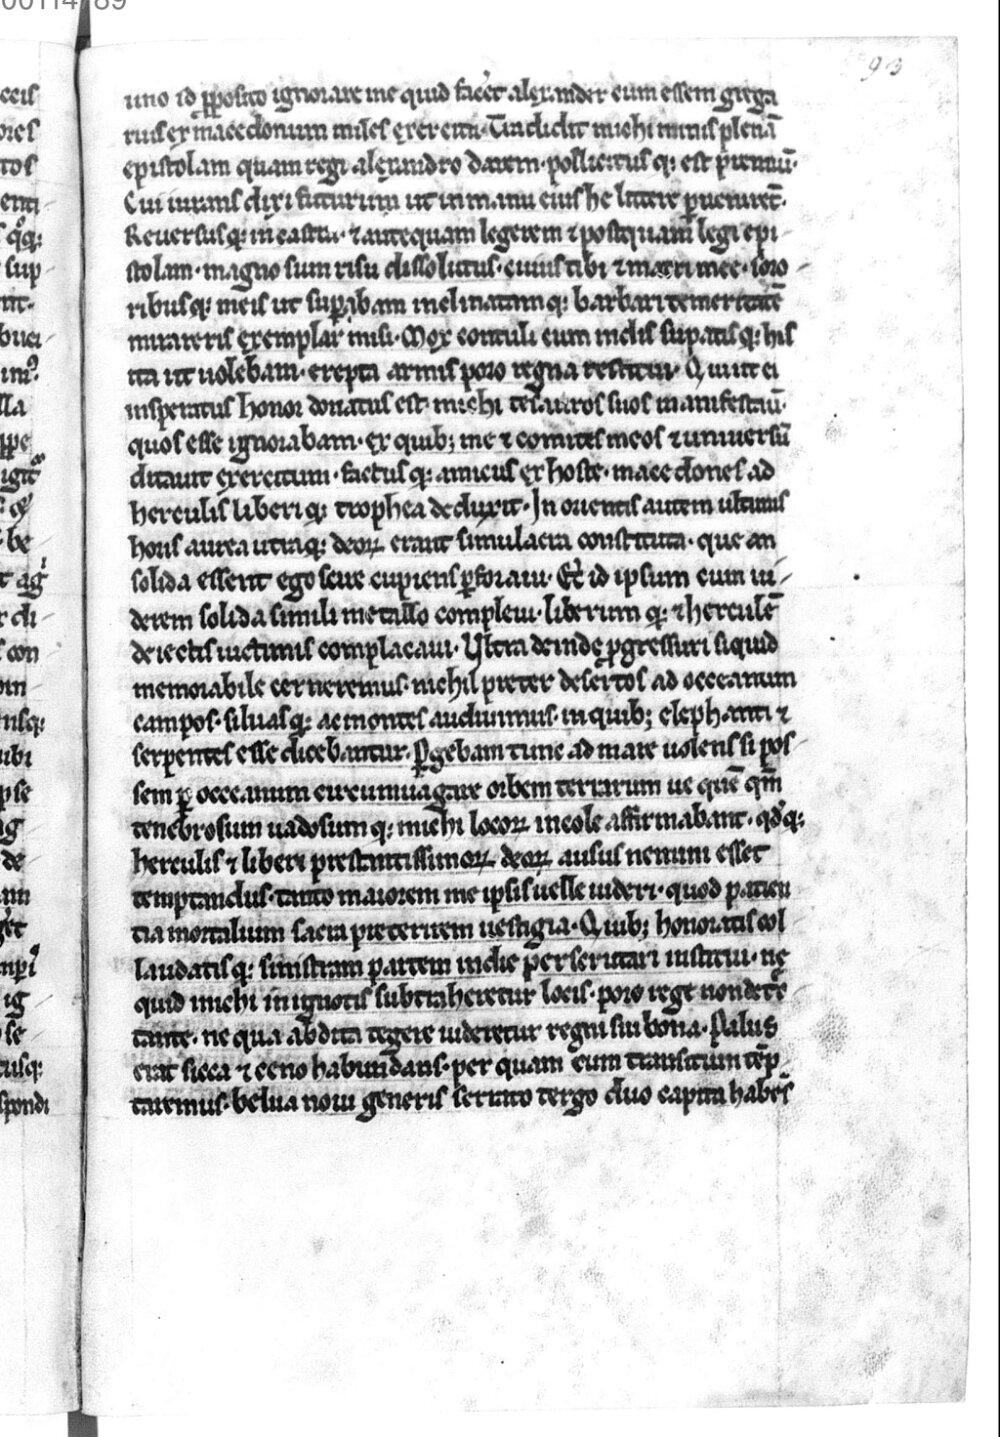 93
uno id p̱posito ignorare me quid facet̉ alexander cum essem grega
rius ex macedonum miles exercitu. Tūc dedit michi minis plenā
epistolam quam regi alexandro darem. pollicitus q; est p̄mium̄.
Cui iurans dixi futurum ut in manu eius he littere ꝑuenirēt.
Reuersus q; in castra. ⁊ antequam legerem ⁊ postquam legi epi-
stolam. magno sum risu dissolutus. cuius tibi ⁊ matri mee. soro-
ribus q; meis ut suꝑbam inclinatam q; barbari temeritatē
mirareris exemplar misi. Mox contuli cum indis supatis q; his
ita ut uolebam. erepta armis poro regna restitui. Qui ut ei
insperatus honor donatus est. michi tesauros suos manifestau̅.
quos esse ignorabam. ex quib; me ⁊ comites meos ⁊ uniuersū
ditauit exercitum. factus q; amicus ex hoste. macedones ad
herculis liberi q; trophea deduxit. In orientis autem ultimis
horis aurea utraq; deoꝝ erant simulacra constituta. que an
solida essent ego scire cupiens ꝑforaui. Et id ipsum cum ui-
derem solida simili metallo compleui. liberum q; ⁊ herculē
deiectis uictimis complacaui. Ultra deinde ꝓgressuri siquid
memorabile cerneremus. nichil preter desertos ad occeanum
campos. siluas q; ac montes audiuimus. in quib; elephanti ⁊
serpentes esse dicebantur. Ꝑgebam tunc ad mare uolens si pos-
sem ꝑ occeanum circumuagare orbem terrarum ue quē qm̄
tenebrosum uadosum q; michi locoꝝ incole affirmabant. qd̓ q;
herculis ⁊ liberi prestantissimoꝝ deoꝝ ausus nemini esset
temptandus. tanto maiorem me ipsis uelle uideri. quod patien
tia mortalium sacra preterirem uestigia. Quib; honoratis col
laudatis q; sinistram partem indie perscrutari institui. ne
quid michi in ignotis subtraheretur locis. poro rege non detrē
tante. ne qua abdita tegere uideretur regni sui bona. Palus
erat sicca ⁊ ceno habundans. per quam cum transitum tēp-
taremus. belua noui generis serrato tergo duo capita habēs